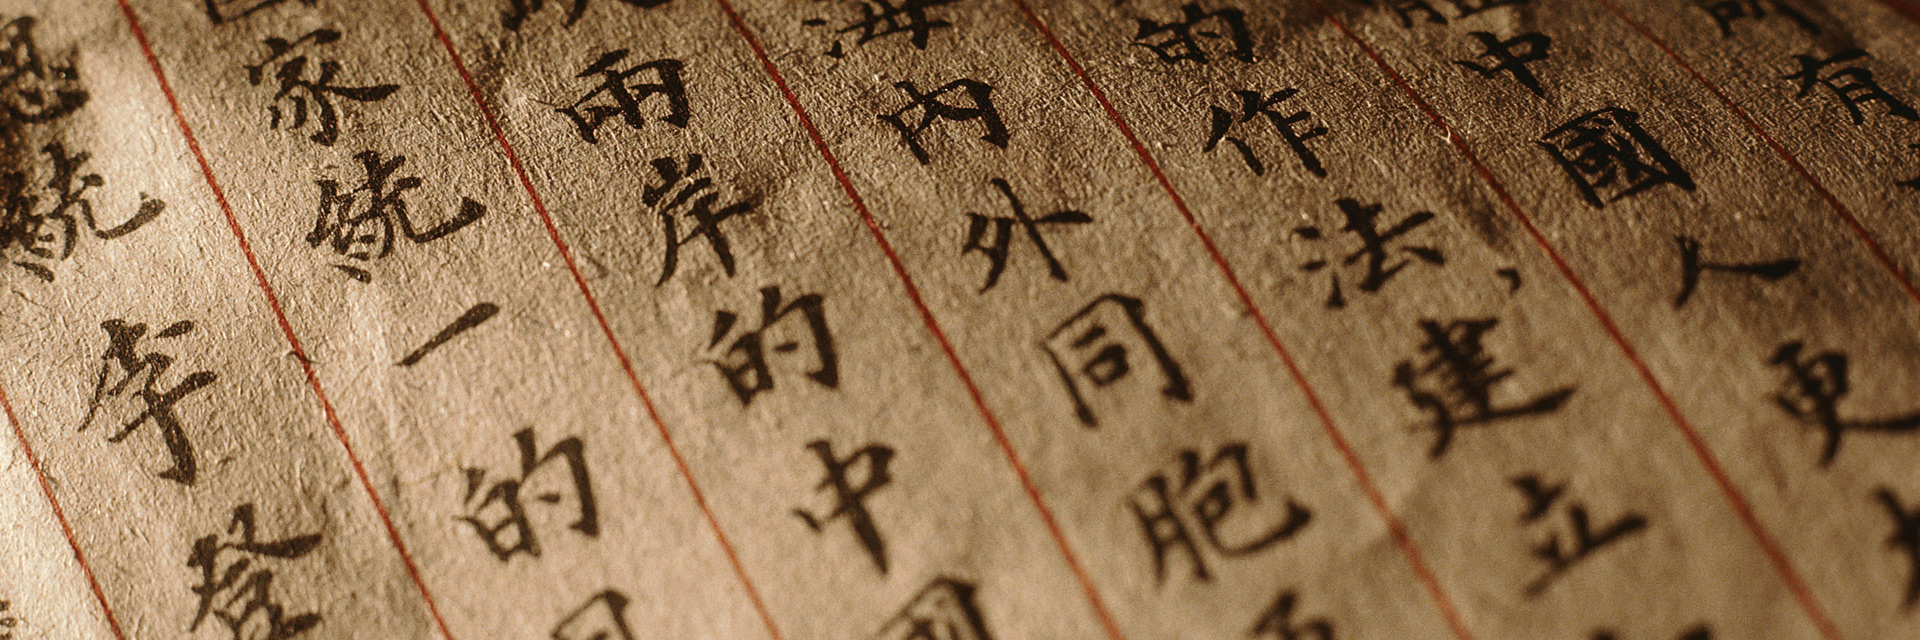 有
中國人更
的作法，建立
海內外同胞
兩岸的中國
家統一的
總統李登